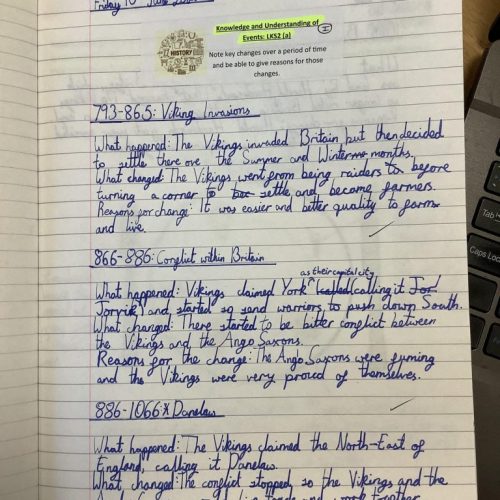 Friday 10
Knowledge and Understanding of
Events: LKS2 (a)
HISTORY
Note key changes over a period of time
and be able to give reasons for those
changes.
793-865: Viking Invasions
What happened: The Vikings invaded Britain but then decided
to settle there over the Summer and Winter months.
What changed: The Vikings went from being raiders to before
turning a corner to settle and become farmers.
Reasons for change: It was easier and better quality to farm
and live.
866-886: Conflict within Britain
as their capital city
What happened: Vikings claimed York (called (calling it Jor
Jorvik) and started to send warriors to push down South.
What changed: There started to be bitter conflict between
the Vikings and the Anglo Saxons.
Reasons for the change: The Ango Saxons were fuming
and the Vikings were very proud of themselves.
886-1066: Danelaw
What happened: The Vikings claimed the North-East of
England, calling it Danelaw.
What changed: The conflict stopped, so the Vikings and the
Tab
Caps Loc